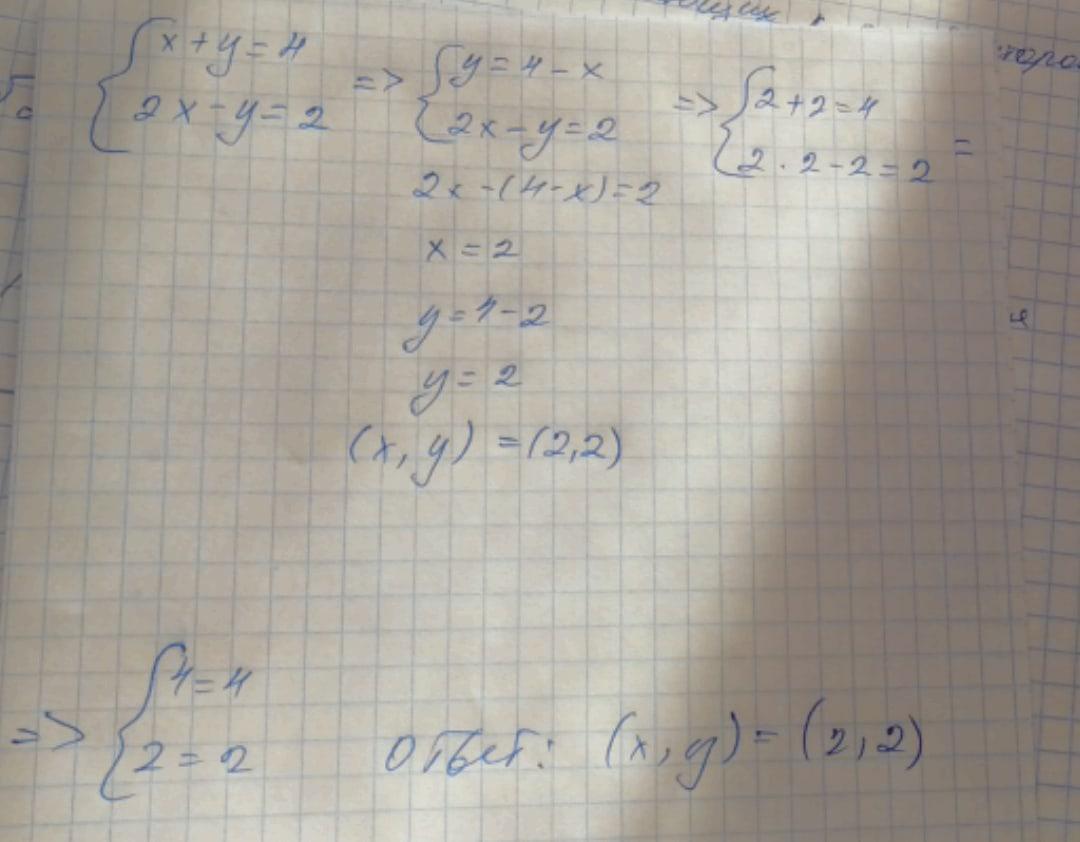 {x+y=4 => {y=4-x => {2+2=4
{2x-y=2 {2x-y=2 {2·2-2=2 =
2x-(4-x)=2
x=2
y=4-2
y=2
(x,y)=(2,2)
=> {4=4
{2=2 ответ: (x,y)=(2,2)